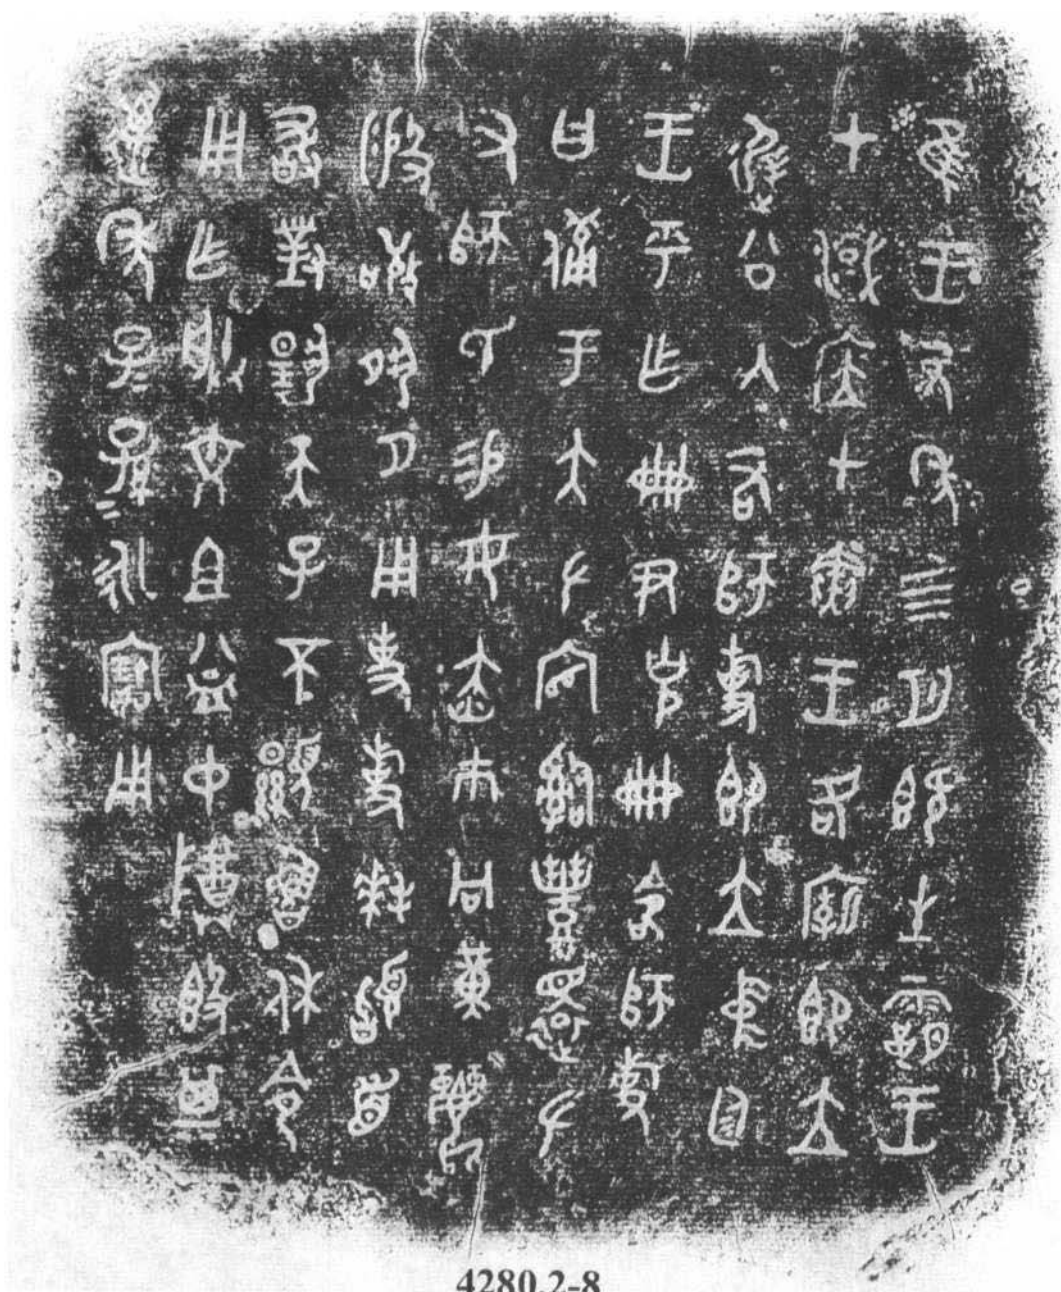 隹王元年四月既生霸王
才淢应甲寅王各廟即立
遟公入右師𬀈即立中廷
王乎乍冊尹克冊命師𬀈
曰備于大ナ官𤔲豐還ナ
又師氏易女赤巿冋黃麗
般敬夙夕用事𬀈拜𩒨首
敢對揚天子不顯魯休令
用乍朕文且益中尊𣪘其
邁年子=孫=永寶用
4280.2-8